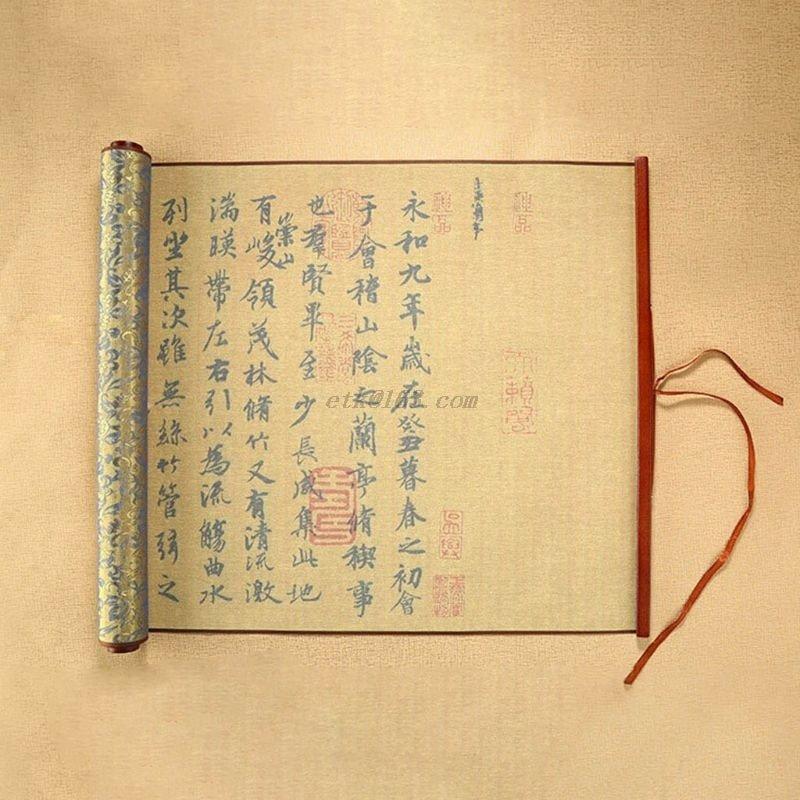 神品
神品
永和九年歲在癸丑暮春之初會
于會稽山陰之蘭亭脩稧事
也羣賢畢至少長咸集此地
有崇山峻領茂林脩竹又有清流激
湍暎帶左右引以為流觴曲水
列坐其次雖無絲竹管弦之